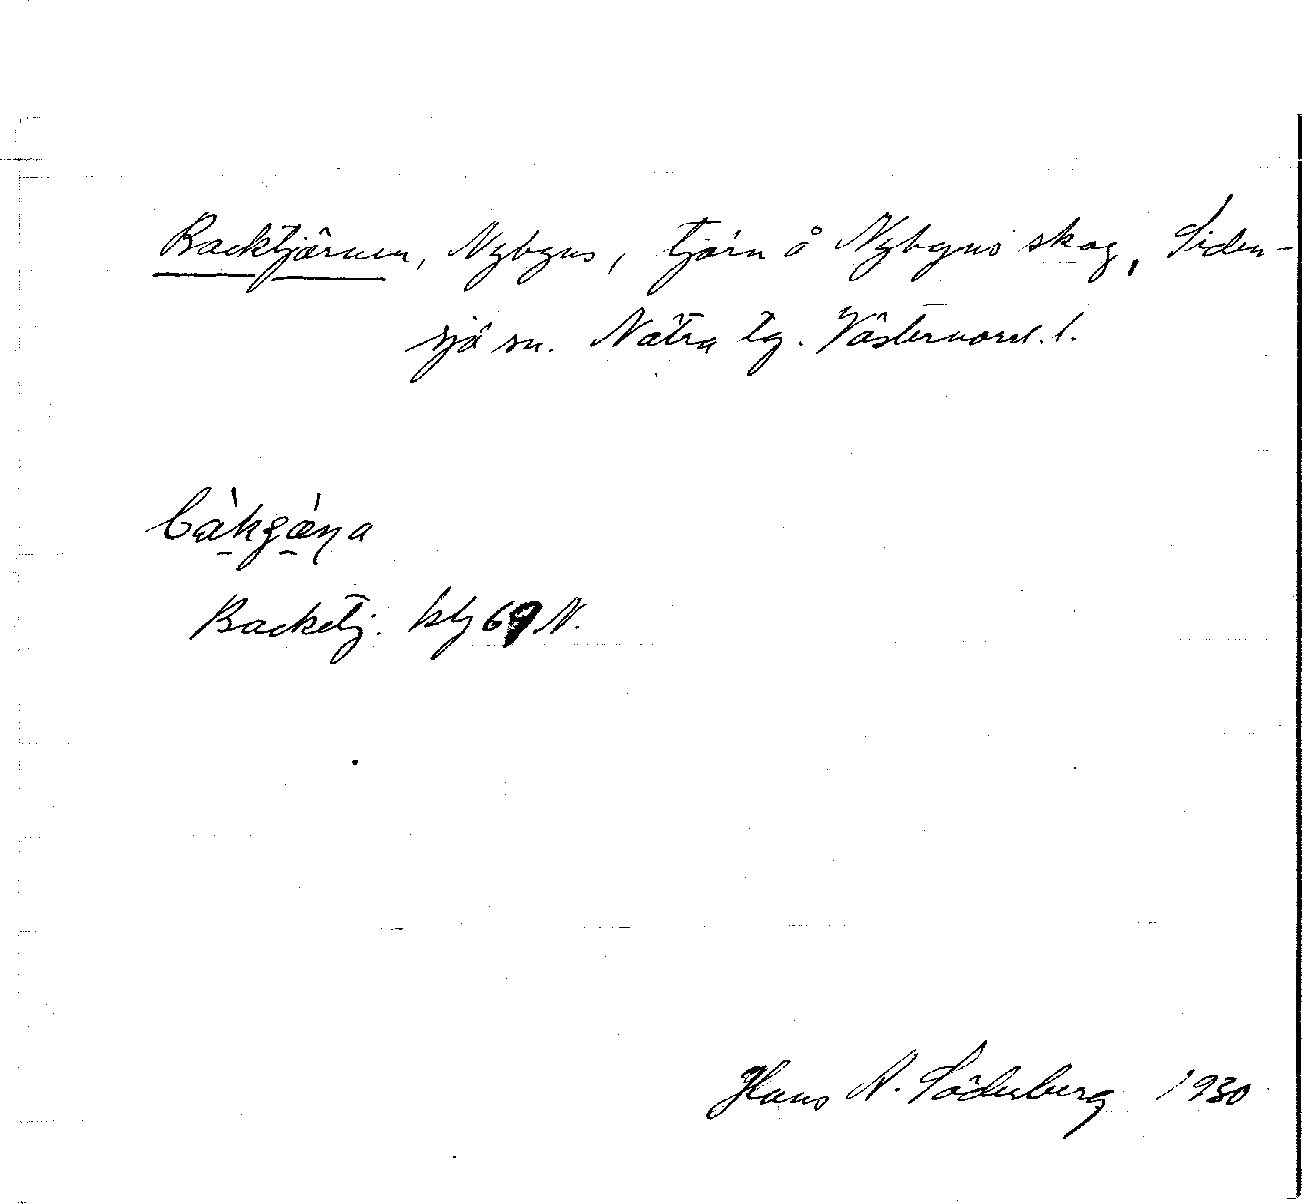 Backtjärnen, Nybyns, tjärn å Nybyns skog, Siden-
sjö sn. Nätra tg. Västernorrl. l.
Backetj. kbl 69 N.
Hans N. Söderberg 1930